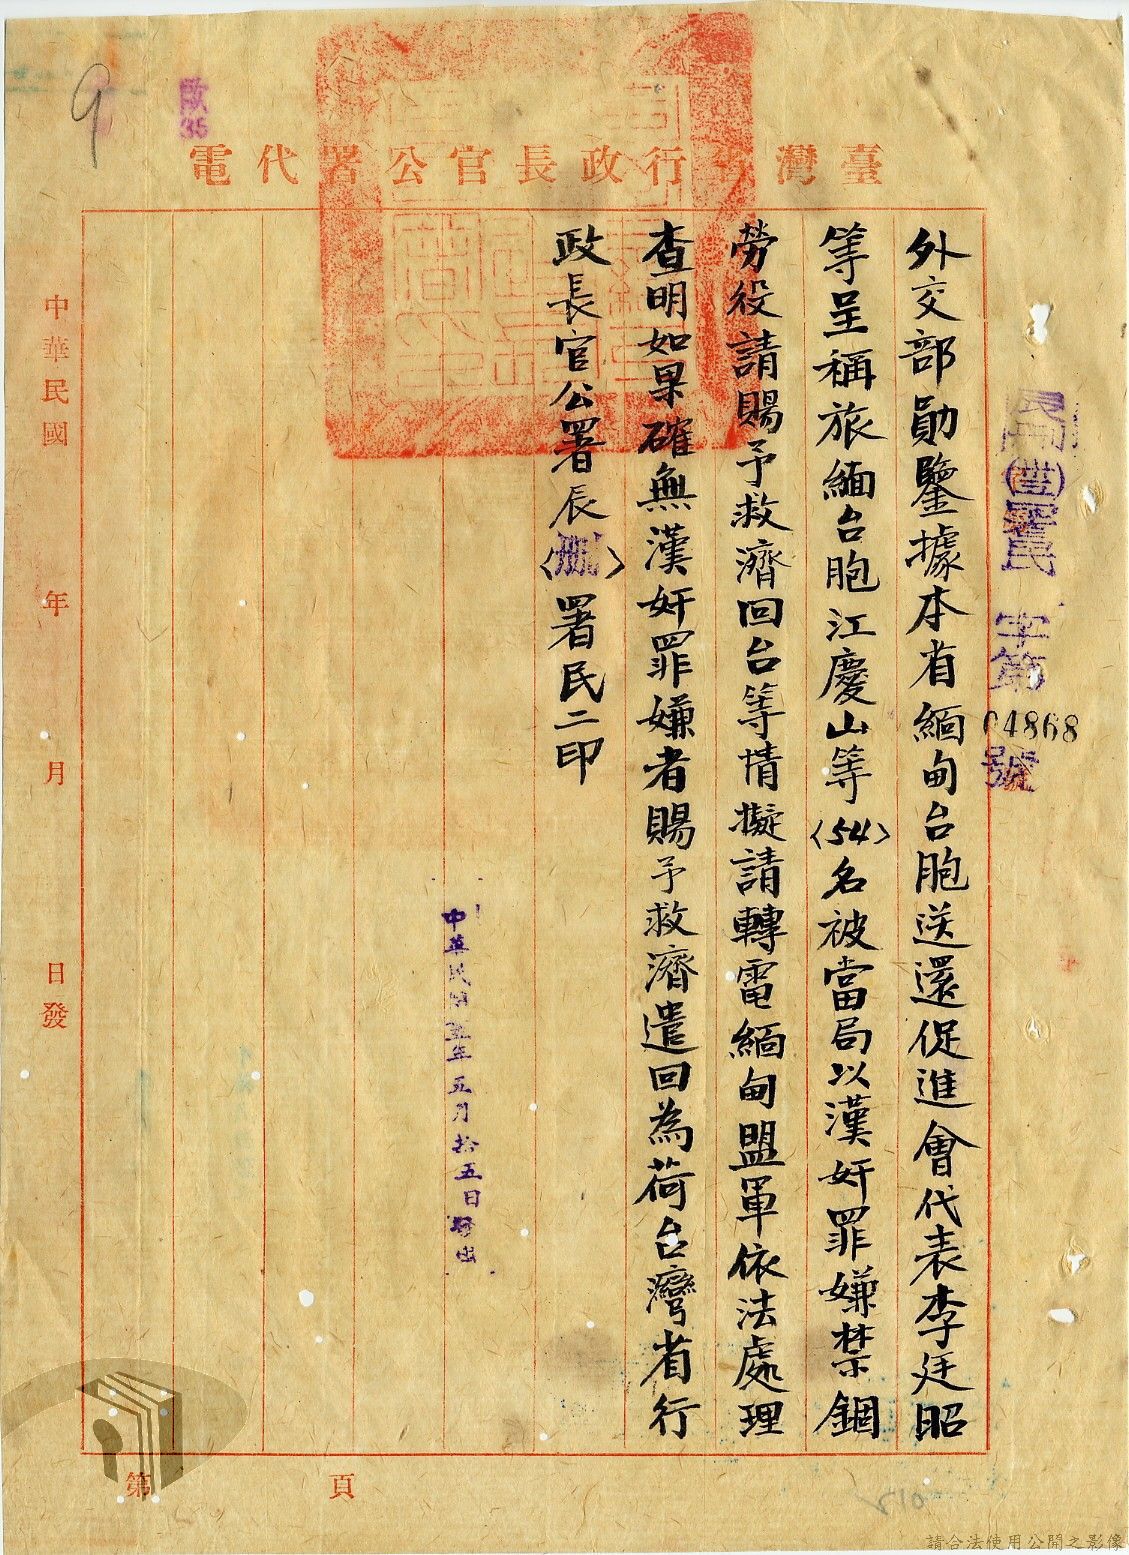 臺灣省行政長官公署代電
字第
04868
號
外交部勛鑒據本省緬甸台胞送還促進會代表李廷昭
等呈稱旅緬台胞江慶山等〈54〉名被當局以漢奸罪嫌禁錮
勞役請賜予救濟回台等情擬請轉電緬甸盟軍依法處理
查明如果確無漢奸罪嫌者賜予救濟遣回為荷台灣省行
政長官公署辰〈刪〉署民二印
中華民國卅五年五月拾五日發出
中華民國 年 月 日發
第 頁
9
35
210
請合法使用公開之影像